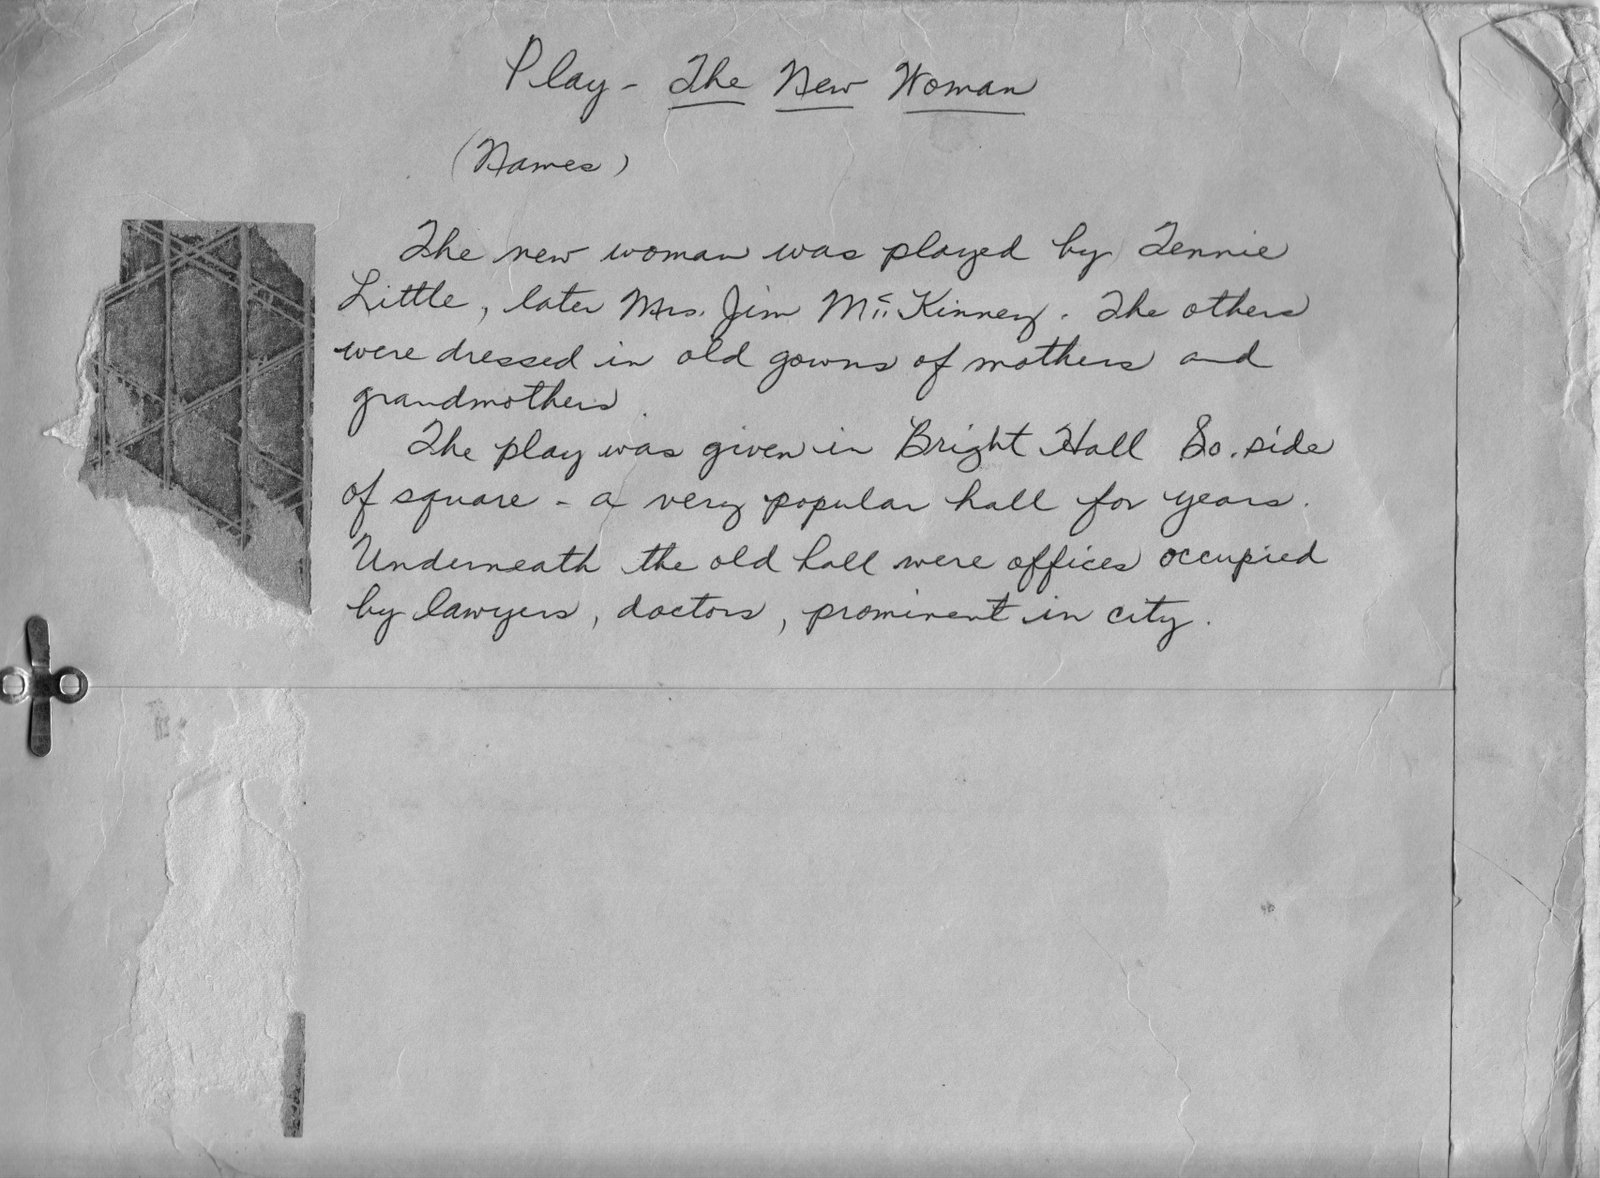 Play - The New Woman
(Names)
The new woman was played by Tennie
Little, later Mrs. Jim McKinney. The others
were dressed in old gowns of mothers and
grandmothers.
The play was given in Bright Hall So. side
of square - a very popular hall for years.
Underneath the old hall were offices occupied
by lawyers, doctors, prominent in city.